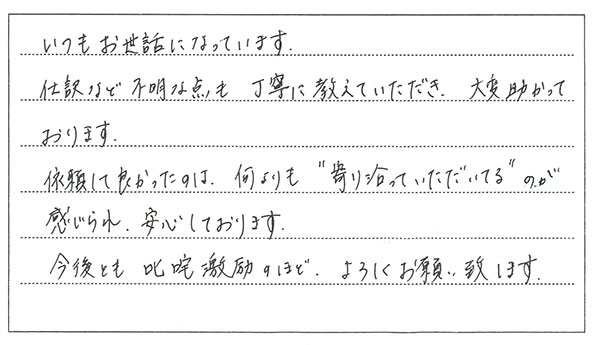 いつもお世話になっています.
仕訳など不明な点も 丁寧に教えていただき. 大変助かって
おります.
依頼して良かったのは. 何よりも "寄り沿っていただいてる" のが
感じられ. 安心しております.
今後とも 叱咤激励のほど. よろしくお願い致します.